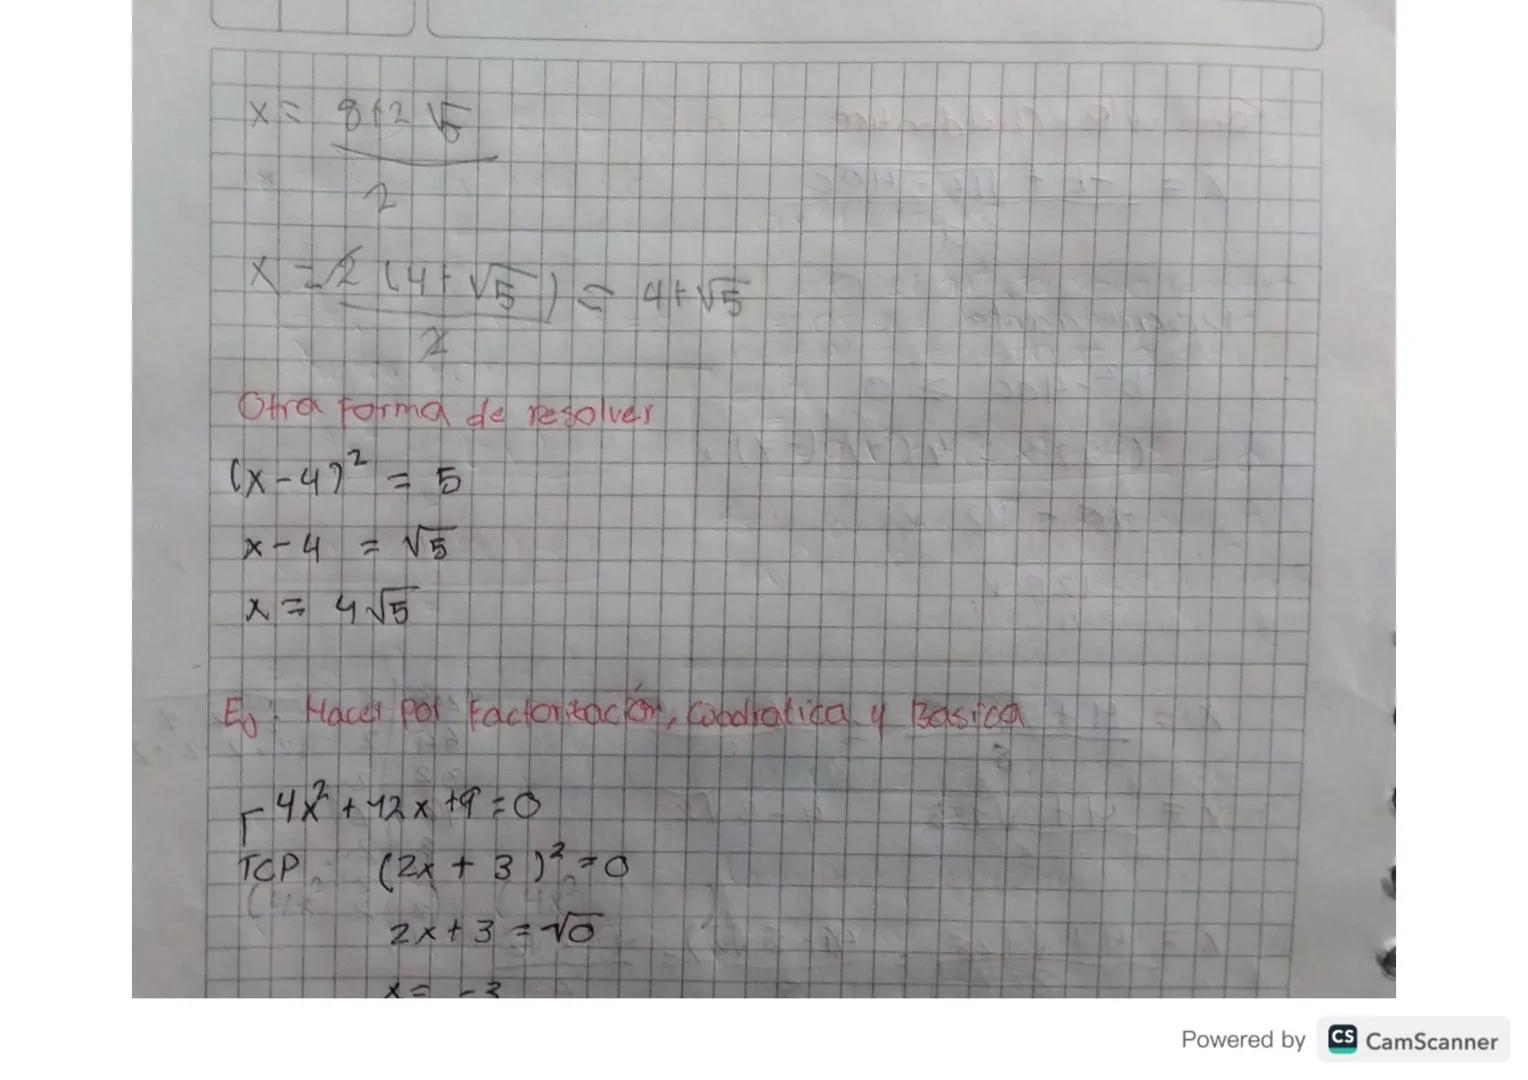 x = 8+2 √5
2
x = 2 (4+√5) = 4+√5
2
Otra Forma de resolver
(x-4)² = 5
x-4 = √5
x = 4√5
Ej: Hacer por Factorización, Cuadratica y Basica
4x²+12x+9=0
TCP (2x + 3)²=0
2x+3 = √0
x = -3
Powered by CS CamScanner